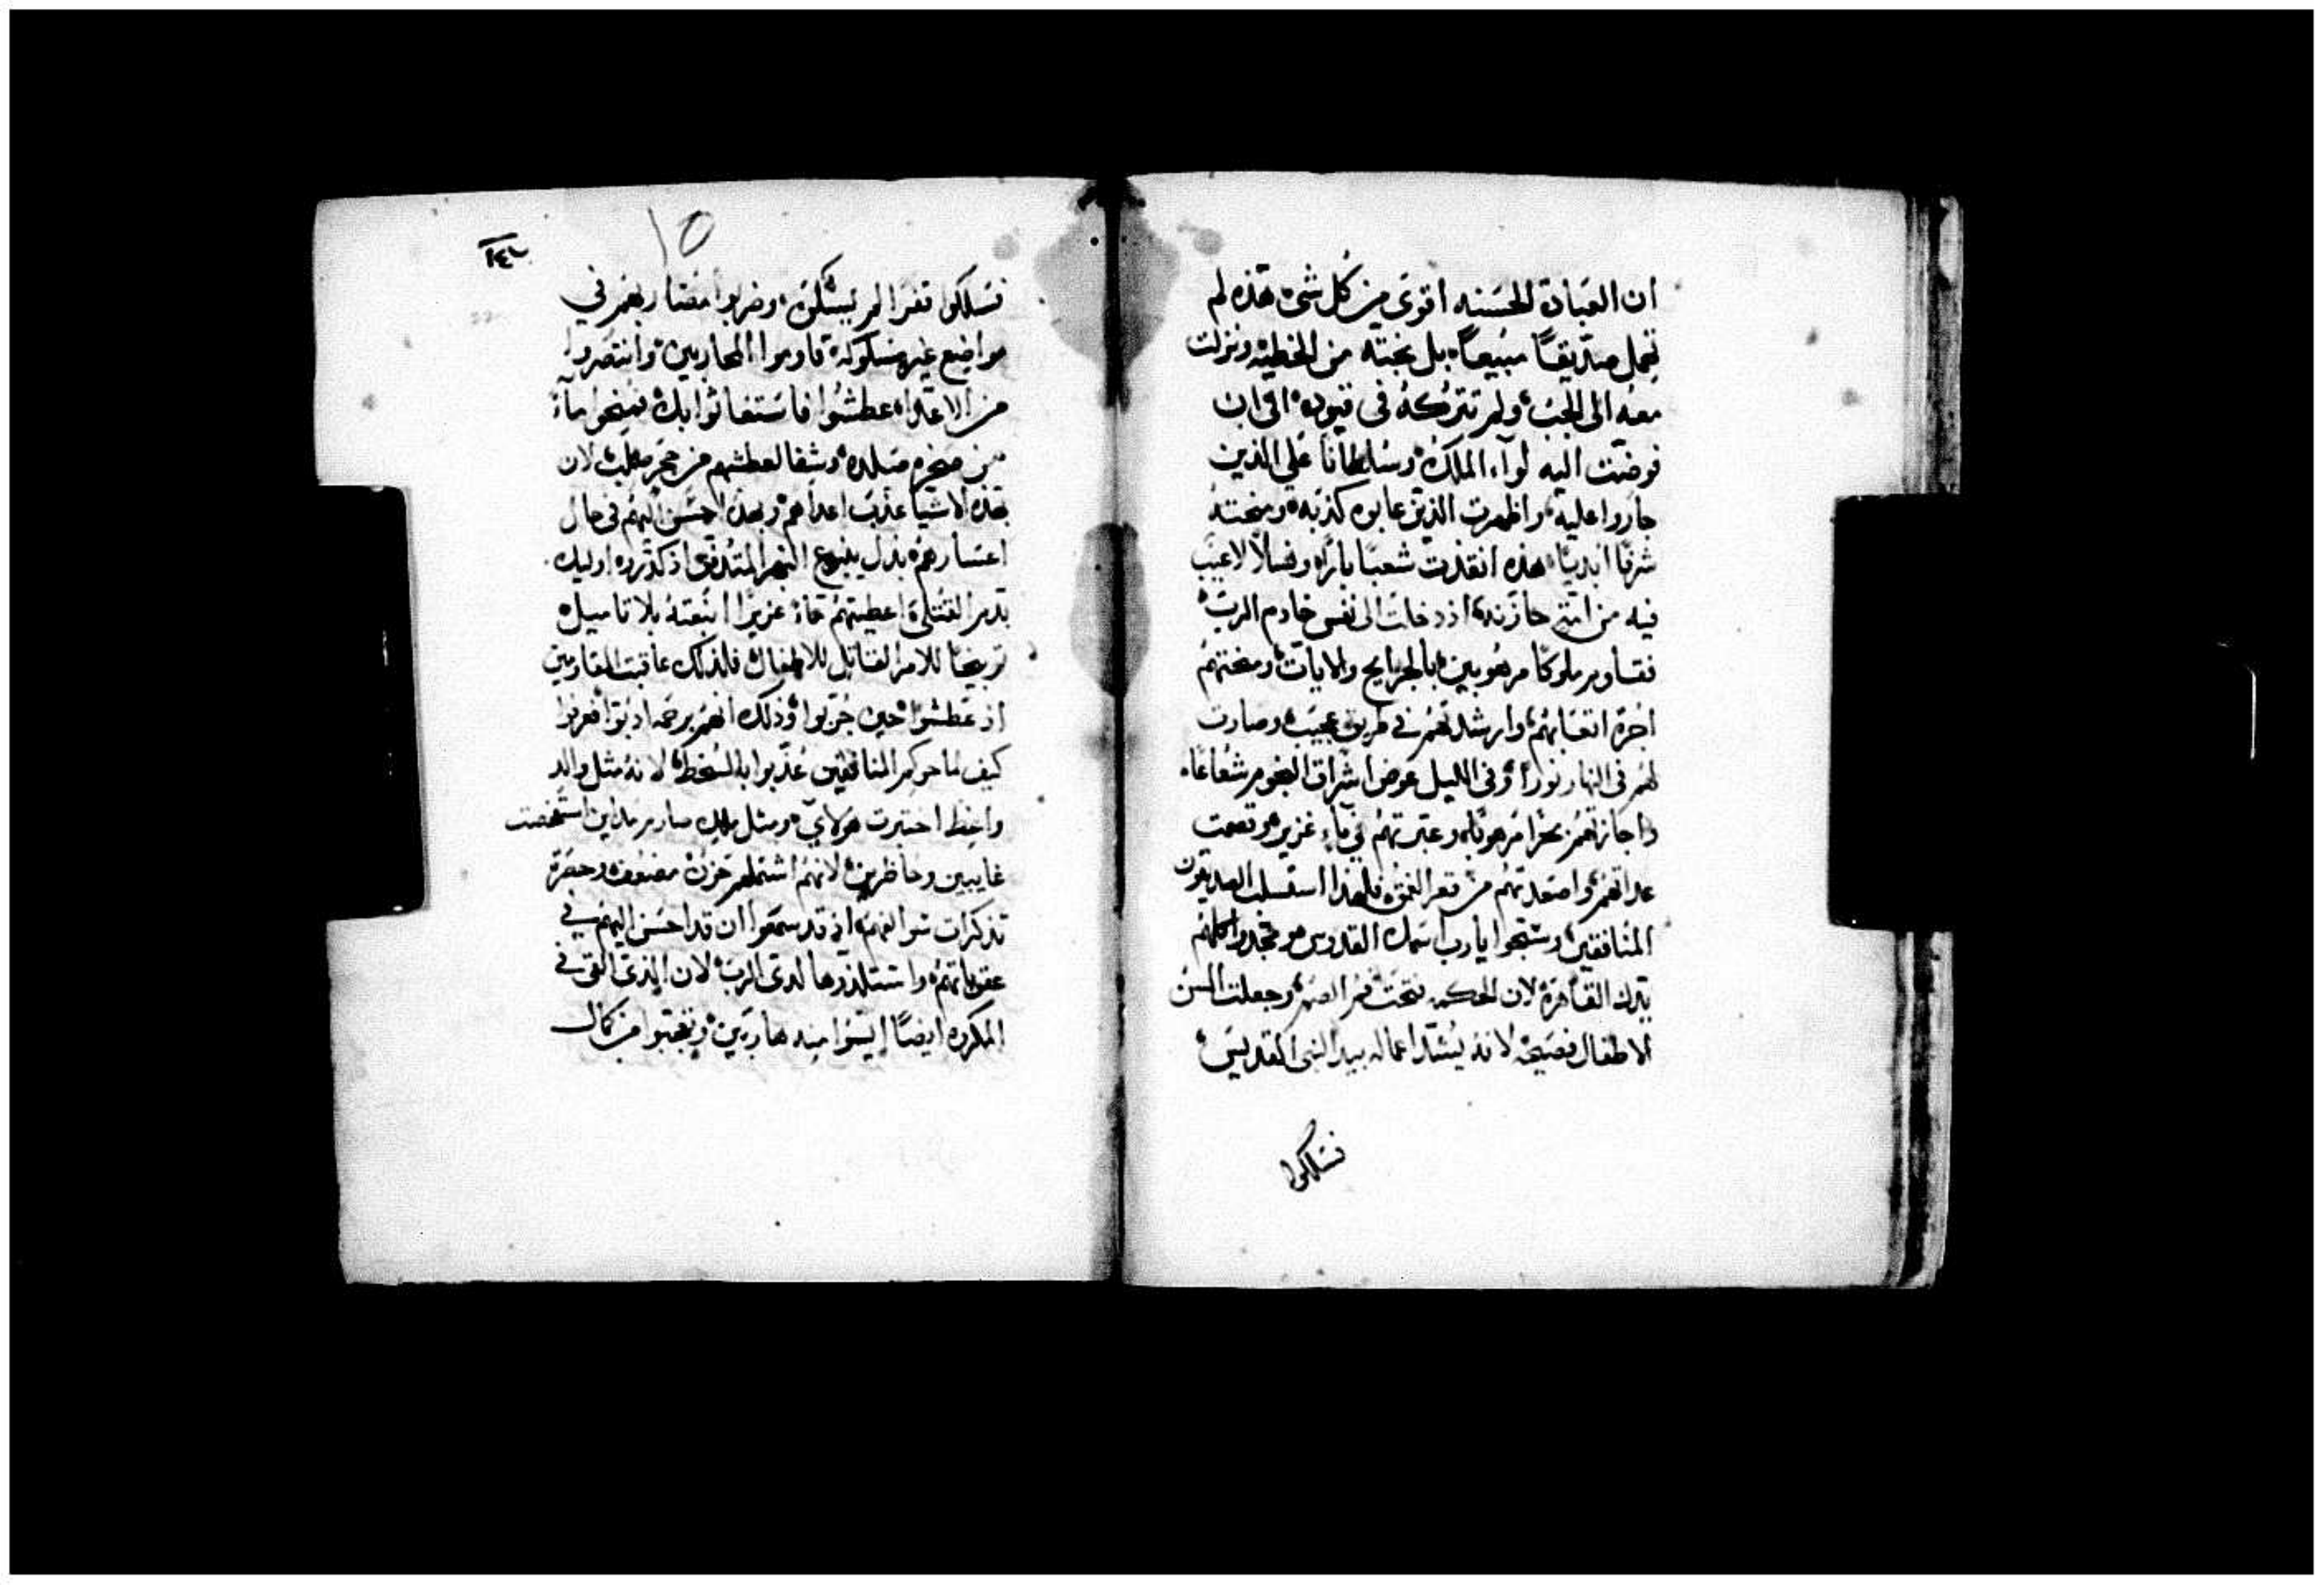 ان العبادة الحسنه اقوى من كل شى هذه لم
تهمل صديقًا مبيعًا بل نجته من الخطيه ونزلت
معه الى الجب ولم تتركه فى قيوده الى ان
فوضت اليه لوآء الملك وسلطانًا على الذين
جاروا عليه واظهرت الذين عابوه كذبه ومنحته
شرفًا ابديًا هذه انقذت شعبًا بارًا ونسلاً لا عيب
فيه من امتي حازنه اذ دخلت الى نفس خادم الرب
فقاوم ملوكًا مرهوبين بالجرايح والايات ومنحتهم
اجرة اتعابهم وارشدتهم في طريق عجيب وصارت
لهم فى النهار نورًا وفى الليل عوض اشراق النجوم شعاعًا
واجازتهم بحرًا مرهوبًا وعبرتهم في مآء غزير وقمعت
عداتهم واصعدتهم من قعر العمق فلهذا استسلب الصديقون
المنافقين وسبحوا يارب اسمك القدوس ومجدوا كلهم
يدك القاهرة لان الحكمه فتحت فم الصم وجعلت السن
الاطفال فصيحه لانه يشدد اعماله بيد النبى القديس
فسلكوا
١٥
١٤٦
فسلكوا قفرًا لم يسكن وضربوا مضاربهم في
مواضع غير مسلوكه قاوموا المحاربين وانتصروا
من الاعدا عطشوا فاستغاثوا بك فمنحوا مآء
من صخره صلده وشفا لعطشهم من حجر صلب لان
بهذه الاشيا عذب اعداهم وبهذا احسن اليهم فى حال
اعسارهم بدل ينبوع النهر المتدفق اذ كدروه اوليك
بدم القتلى اعطيتهم مآء غزيرًا انبعته بلا تاميل
توبيخًا للامر القاتل للاطفال فلذلك عاقبت المقاومين
اذ عطشوا حين جربوا وذلك انهم برحمه ادبوا فعرفوا
كيف لما حوكم المنافقين عذبوا بالسخط لانه مثل والد
واعظ اختبرت هولاى ومثل ملك صارم مداين استفحصت
غايبين وحاضرين لانهم اشتملهم حزن مضعوف وحصرة
تذكرات سوالفهم اذ قد سمعوا ان قد احسن اليهم في
عقوباتهم واستلذوها لدى الرب لان الذى القى في
المكروه ايضًا ايسوا منه هازيين وتعجبوا من كمال